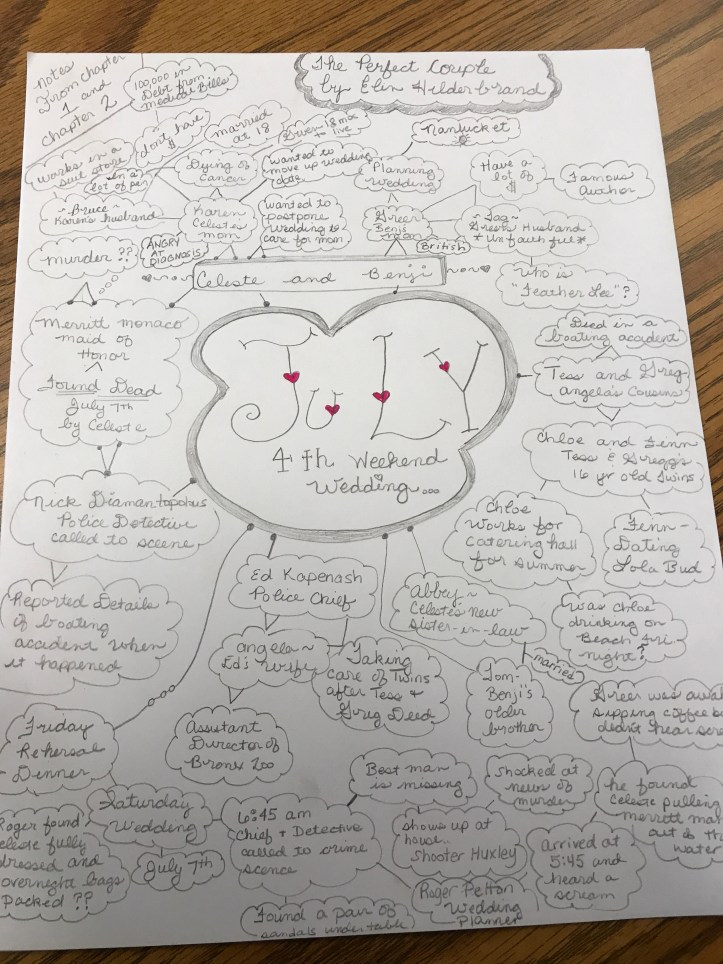 Notes
From Chapter
1 and
Chapter 2
100,000 in
Debt from
medical Bills
The Perfect Couple
by Elin Hilderbrand
works in a
suit store
don't have
$
married
at 18
Given 18 mos
to live
Nantucket
in a
lot of pain
Dying of
Cancer
wanted to
move up wedding
date
Planning
Wedding
Have a
lot of
$
Famous
Author
~Bruce~
Karen's husband
Karen
Celeste's
mom
wanted to
postpone
wedding to
care for mom
Greer
Benji's
mom
British
~Tag~
Greer's Husband
*unfaithful*
murder??
ANGRY
AT
DIAGNOSIS
Celeste and Benji
who is
"Feather Lee"?
Merritt Monaco
maid of
Honor
Found Dead
July 7th
by Celeste
JuLY
4th Weekend
Wedding...
Died in a
boating accident
Tess and Greg
angela's Cousins
Chloe and Finn
Tess & Gregg's
16 yr old twins
Nick Diamantopolus
Police Detective
called to scene
Chloe
works for
catering hall
for summer
Finn-
Dating
Lola Bud
Reported Details
of boating
accident when
it happened
Ed Kapenash
Police Chief
Abbey~
Celeste's new
sister-in-law
was Chloe
drinking on
Beach Fri-
night?
angela~
Ed's wife
Taking
care of Twins
after Tess &
Greg Died
married
Tom-
Benji's
older
brother
Assistant
Director of
Bronx Zoo
Greer was awa
sipping coffee b
didn't hear scre
Friday
Rehersal
Dinner
Saturday
Wedding
July 7th
6:45 am
Chief & Detective
called to crime
scence
Best man
is missing
shows up at
house..
Shooter Huxley
shocked at
news of
murder
he found
Celeste pulling
merritt
out of th
water
Roger found
Celeste fully
dressed and
overnight bags
packed??
Found a pair of
sandals under table
Roger Pelton
Wedding
Planner
arrived at
5:45 and
heard a
scream